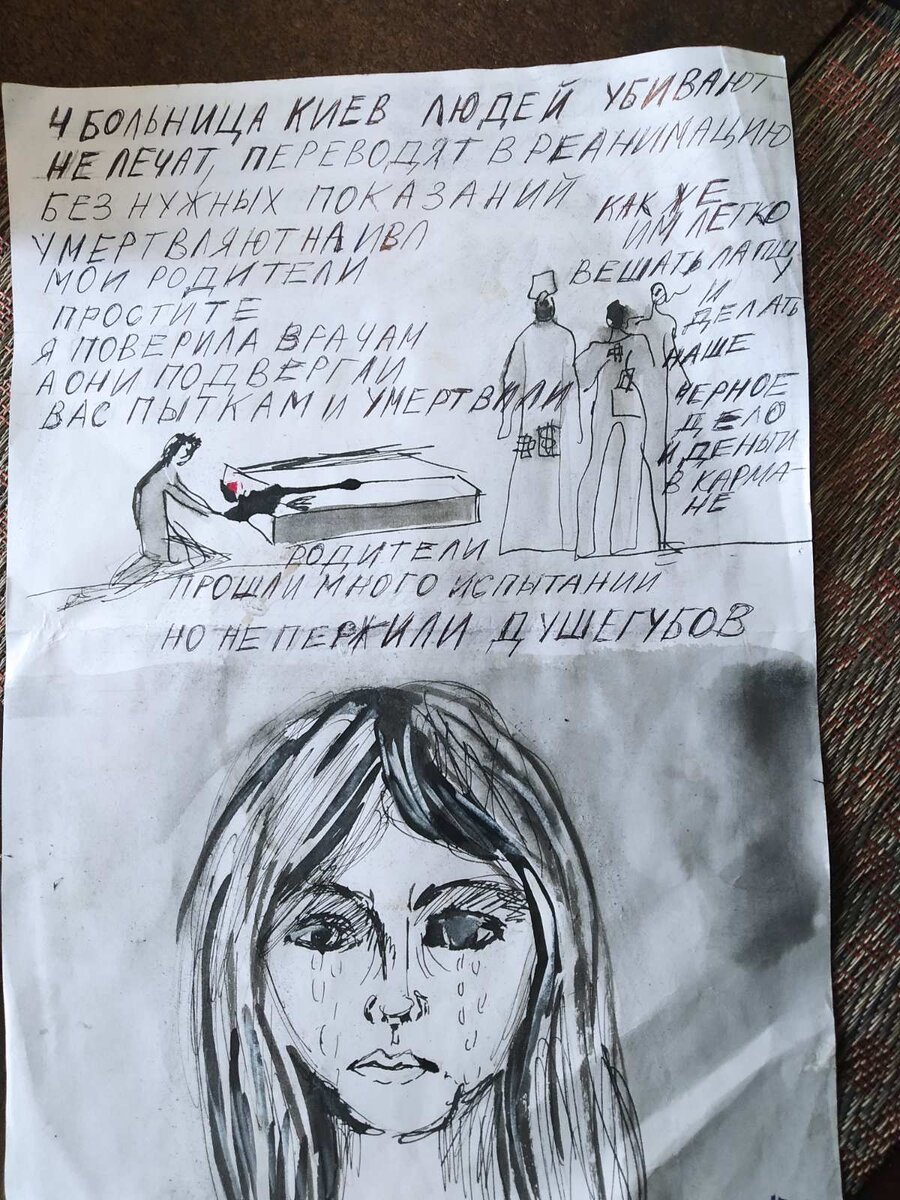 4 БОЛЬНИЦА КИЕВ ЛЮДЕЙ УБИВАЮТ
НЕ ЛЕЧАТ, ПЕРЕВОДЯТ В РЕАНИМАЦИЮ
БЕЗ НУЖНЫХ ПОКАЗАНИЙ
УМЕРТВЛЯЮТ НА ИВЛ
МОИ РОДИТЕЛИ
ПРОСТИТЕ
Я ПОВЕРИЛА ВРАЧАМ
А ОНИ ПОДВЕРГЛИ
ВАС ПЫТКАМ И УМЕРТВИЛИ
КАК ЖЕ
ИМ ЛЕГКО
ВЕШАТЬ ЛАПШУ
И
ДЕЛАТЬ
НАШЕ
ЧЕРНОЕ
ДЕЛО
И ДЕНЬГИ
В КАРМА-
НЕ
РОДИТЕЛИ
ПРОШЛИ МНОГО ИСПЫТАНИИ
НО НЕ ПЕРЖИЛИ ДУШЕГУБОВ